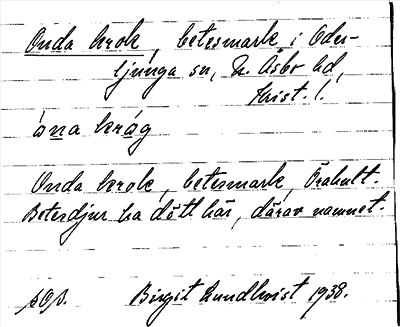 Onda krok, betesmark i Oder-
ljunga sn, N. Åsbo hd,
Krist. l.
ó̱na kråg
Onda krok, betesmark, Örahult.
Betesdjur ha dött här, därav namnet.
Birgit Lundkvist 1938.